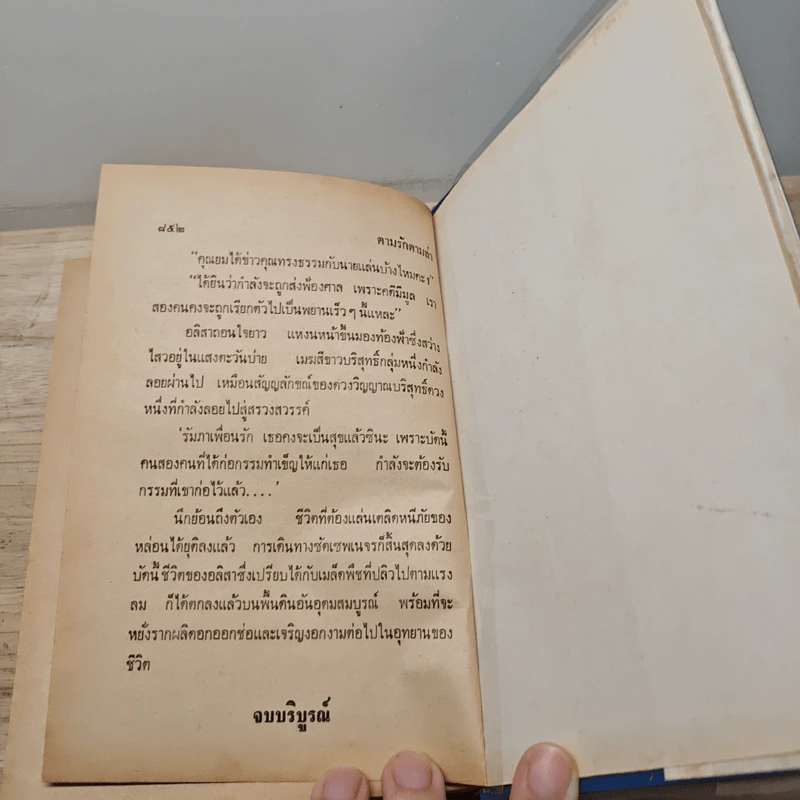 ๘๕๒
ตามรักตามล่า
"คุณยมได้ข่าวคุณทรงธรรมกับนายแล่นบ้างไหมคะ?"
"ได้ยินว่ากำลังจะถูกส่งฟ้องศาล เพราะคดีมีมูล เรา
สองคนคงจะถูกเรียกตัวไปเป็นพยานเร็วๆ นี้แหละ"
อลิสาถอนใจยาว แหงนหน้าขึ้นมองท้องฟ้าซึ่งสว่าง
ไสวอยู่ในแสงตะวันบ่าย เมฆสีขาวบริสุทธิ์กลุ่มหนึ่งกำลัง
ลอยผ่านไป เหมือนสัญญลักขณ์ของดวงวิญญาณบริสุทธิ์ดวง
หนึ่งที่กำลังลอยไปสู่สรวงสวรรค์
'รัมภาเพื่อนรัก เธอคงจะเป็นสุขแล้วซินะ เพราะบัดนี้
คนสองคนที่ได้ก่อกรรมทำเข็ญให้แก่เธอ กำลังจะต้องรับ
กรรมที่เขาก่อไว้แล้ว....'
นึกย้อนถึงตัวเอง ชีวิตที่ต้องแล่นเตลิดหนีภัยของ
หล่อนได้ยุติลงแล้ว การเดินทางซัดเซพเนจรก็สิ้นสุดลงด้วย
บัดนี้ ชีวิตของอลิสาซึ่งเปรียบได้กับเมล็ดพืชที่ปลิวไปตามแรง
ลม ก็ได้ตกลงแล้วบนพื้นดินอันอุดมสมบูรณ์ พร้อมที่จะ
หยั่งรากผลิดอกออกช่อและเจริญงอกงามต่อไปในอุทยานของ
ชีวิต
จบบริบูรณ์